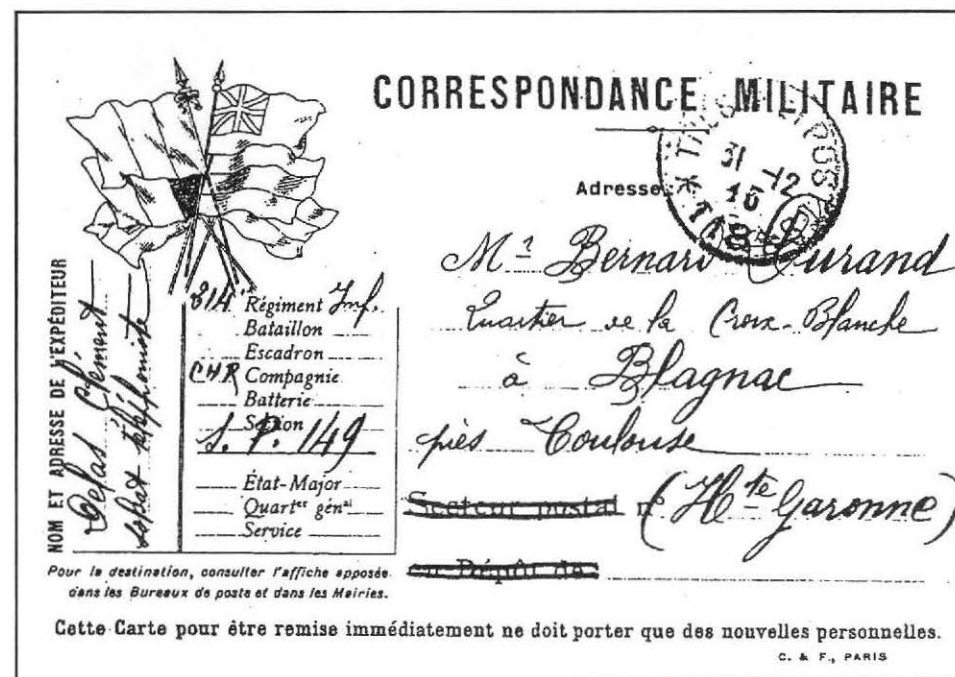 CORRESPONDANCE MILITAIRE
31 -12
Adresse
Mr Bernard Durand
Quartier de la Croix-Blanche
à Blagnac
près Toulouse
Secteur postal n° (Hte Garonne)
en Dépôt de
NOM ET ADRESSE DE L'EXPÉDITEUR
Clément
soldat téléphoniste
314 Régiment Inf.
Bataillon
Escadron
CHR Compagnie
Batterie
Section
S. P. 149
État-Major
Quartier génal
Service
Pour la destination, consulter l'affiche apposée
dans les Bureaux de poste et dans les Mairies.
Cette Carte pour être remise immédiatement ne doit porter que des nouvelles personnelles.
C. & F., PARIS